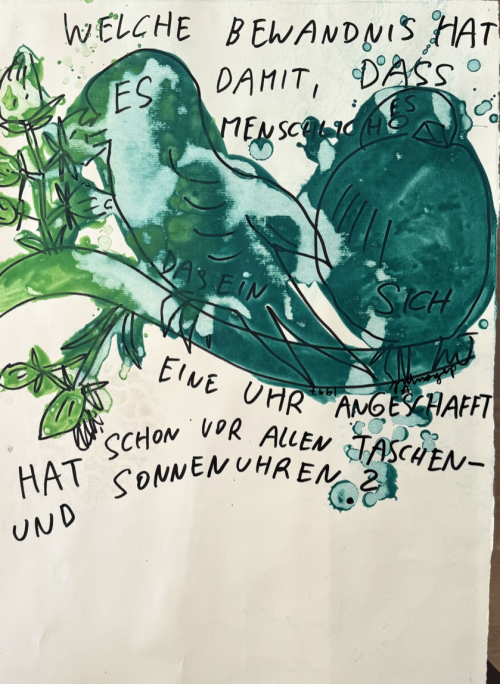 WELCHE BEWANDNIS HAT
ES DAMIT, DASS
MENSCHLICHES
DASEIN SICH
EINE UHR ANGESCHAFFT
HAT SCHON VOR ALLEN TASCHEN-
UND SONNENUHREN?